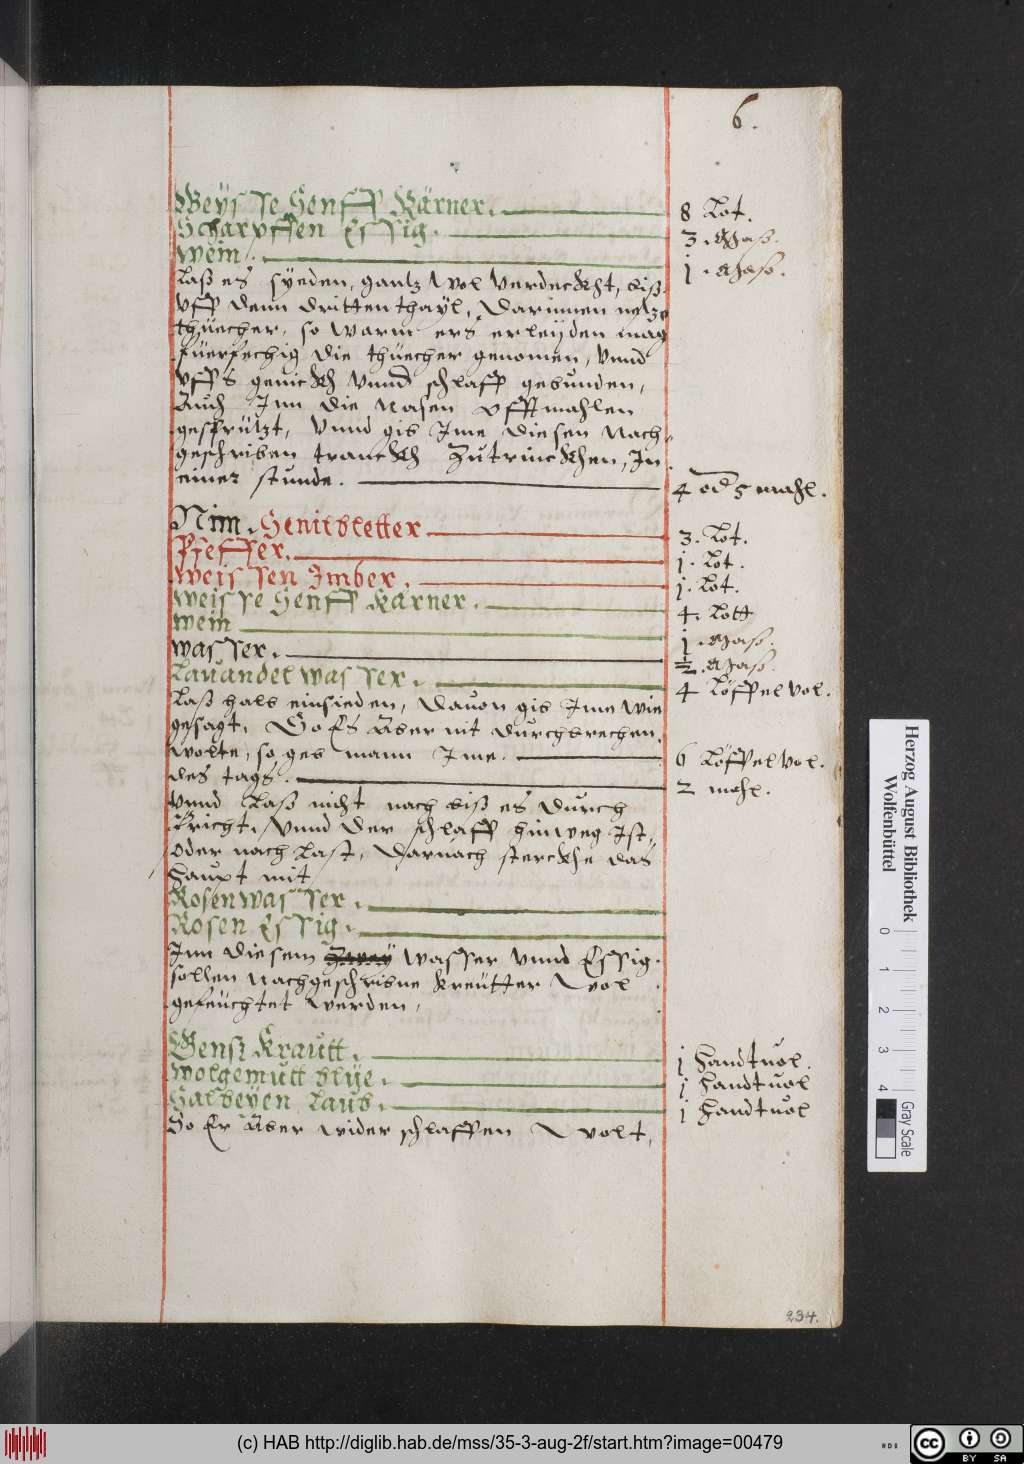 6.
Weysse Senff Kärner. 8 Lot.
Scharpffen Essig. 3. Mass.
Wein. j. Mass.
Lass es syeden, gantz wol verdeckht, biß
vff denn dritten thayl, Darinnen netze
thüecher, so warm ers erleyden mag
füerfechig die thüecher genomen, vnnd
vffs genickh vnnd schlaff gebunden,
Auch Inn die Nasen offtmahlen
gesprützt, vnnd gib Ime diesen Nach-
geschriben tranckh Zutrinckhen, In
einer stunde. 4 od 5 mahl.
Nim. Senitbletter 3. Lot.
Pfeffer. j. Lot.
Weissen Imber. j. Lot.
Weisse Senff Kärner. 4. Lott
Wein j. Mass.
Wasser. ½. Mass.
Lauandel Wasser. 4 Löffel vol.
Lass halb einsieden, Dauon gib Ime wie
gesagt, So Es Aber nit durchbrechen,
wolte, so geb mann Ime. 6 Löffel vol.
des tags. 2 mahl.
Vnnd Lass nicht nach biß es durch
Bricht, Vnnd der schlaff hinweg Ist,
oder nach Last, Darnach sterckhe das
Haupt mit
Rosenwasser.
Rosen Essig.
Inn diesem wasser vnnd Essig
sollen Nachgeschribne kreütter wol
gefeüchtet werden,
Gensz Krautt. j Handtuol.
Wolgemutt blye. j Handtuol
Salbeyen Laub. j Handtuol
So Er Aber wider schlaffen wolt,
234.
Herzog August Bibliothek
Wolfenbüttel
0 1 2 3 4
Gray Scale
(c) HAB http://diglib.hab.de/mss/35-3-aug-2f/start.htm?image=00479
CC BY SA